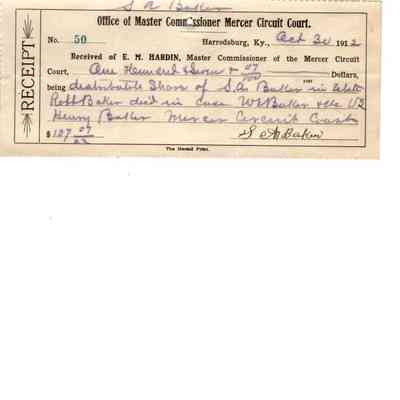 S A Baker
Office of Master Commissioner Mercer Circuit Court.
No. 50 Harrodsburg, Ky., Oct 30 1912
Received of E. M. HARDIN, Master Commissioner of the Mercer Circuit
Court, One Hundred & Seven & 07/100 Dollars,
being distributable Share of S. A. Baker in Estate
Robt Baker dec'd in Case W Baker &c VS
Henry Baker Mercer Circuit Court
$ 107 07
S A Baker
RECEIPT
The Herald Print.